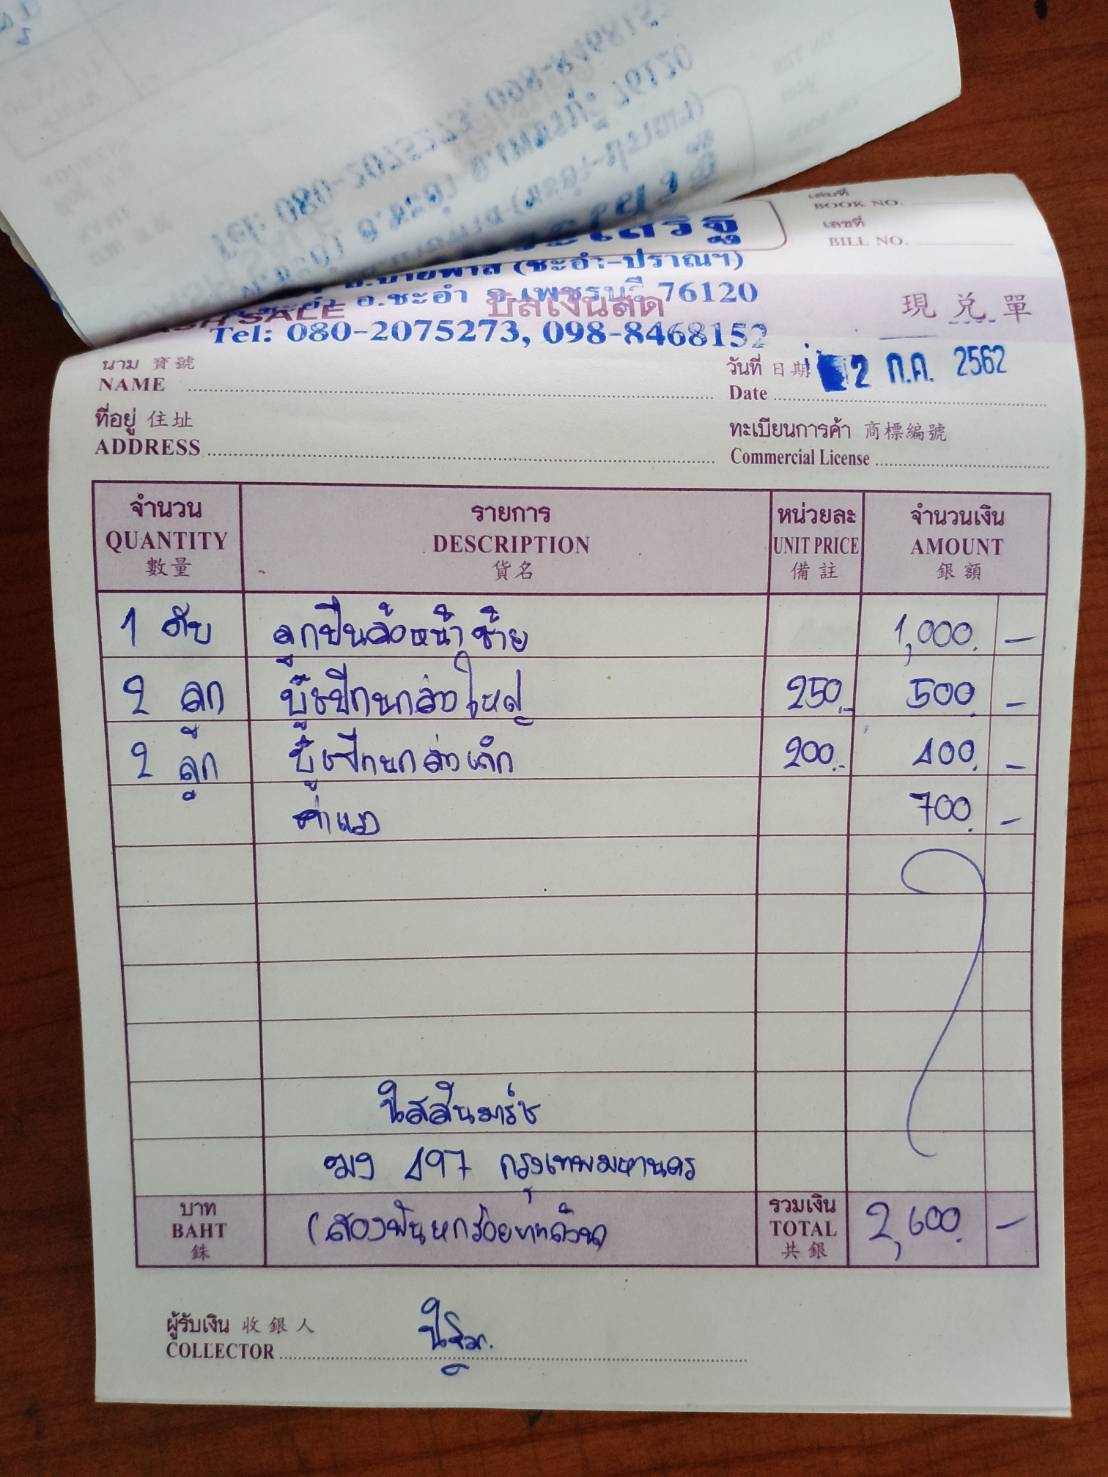 เล่มที่
BOOK NO.
เลขที่
BILL NO.
ถ.บายพาส (ชะอำ-ปราณฯ)
อ.ชะอำ จ.เพชรบุรี 76120
CASH SALE บิลเงินสด 現兑單
Tel: 080-2075273, 098-8468152
นาม 寳號
NAME
วันที่ 日期 2 ก.ค. 2562
Date
ที่อยู่ 住址
ADDRESS
ทะเบียนการค้า 商標編號
Commercial License
จำนวน รายการ หน่วยละ จำนวนเงิน
QUANTITY DESCRIPTION UNIT PRICE AMOUNT
數量 貨名 備註 銀額
1 ตับ ลูกปืนล้อหน้าซ้าย 1,000.-
2 ลูก บู๊ชปีกนกล่างใหญ่ 250.- 500.-
2 ลูก บู๊ชปีกนกล่างเล็ก 200.- 400.-
ค่าแรง 700.-
นิสสันมาร์ช
497 กรุงเทพมหานคร
บาท รวมเงิน
BAHT (สองพันหกร้อยบาทถ้วน) TOTAL 2,600.-
銖 共銀
ผู้รับเงิน 收銀人
COLLECTOR